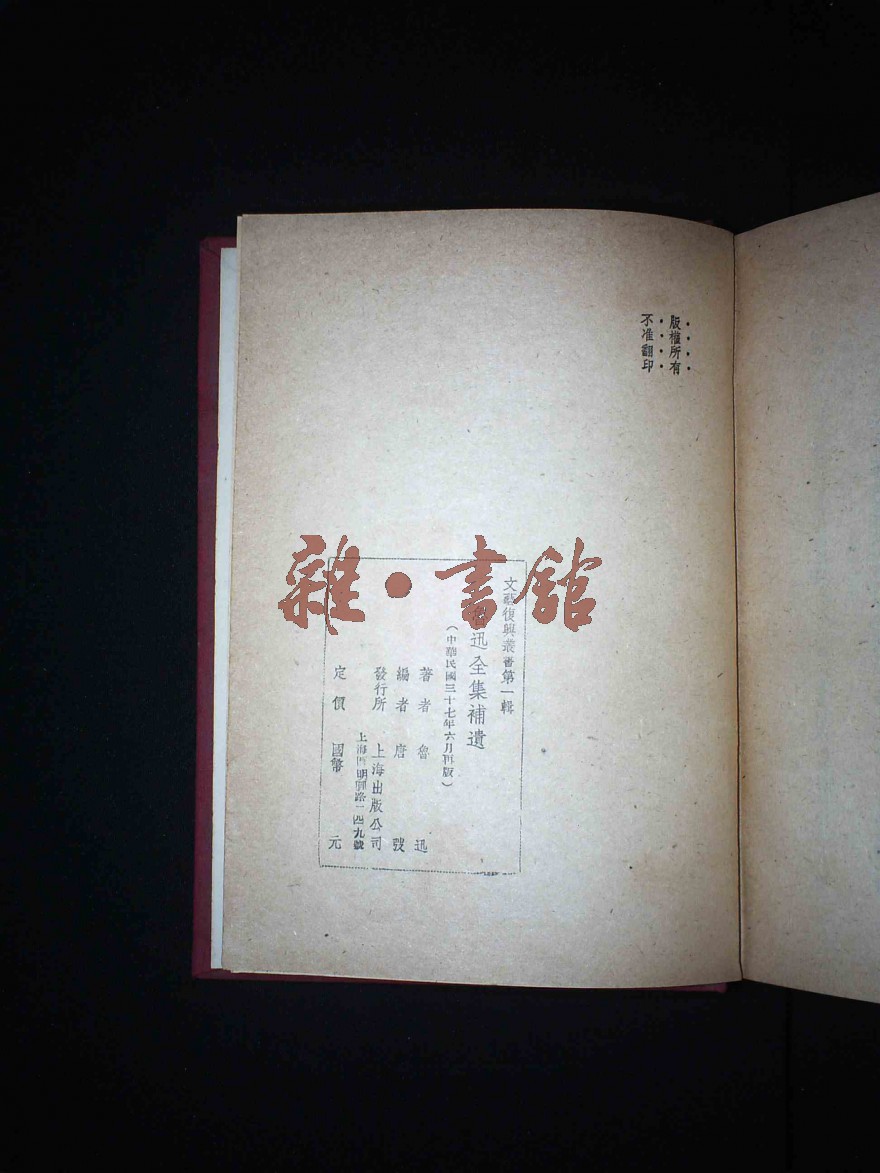 版權所有
不准翻印
文藝復興叢書第一輯
魯迅全集補遺
(中華民國三十七年六月再版)
著者 魯迅
編者 唐弢
發行所 上海出版公司
上海 明 路一四九號
定價 國幣 元
雜·書館